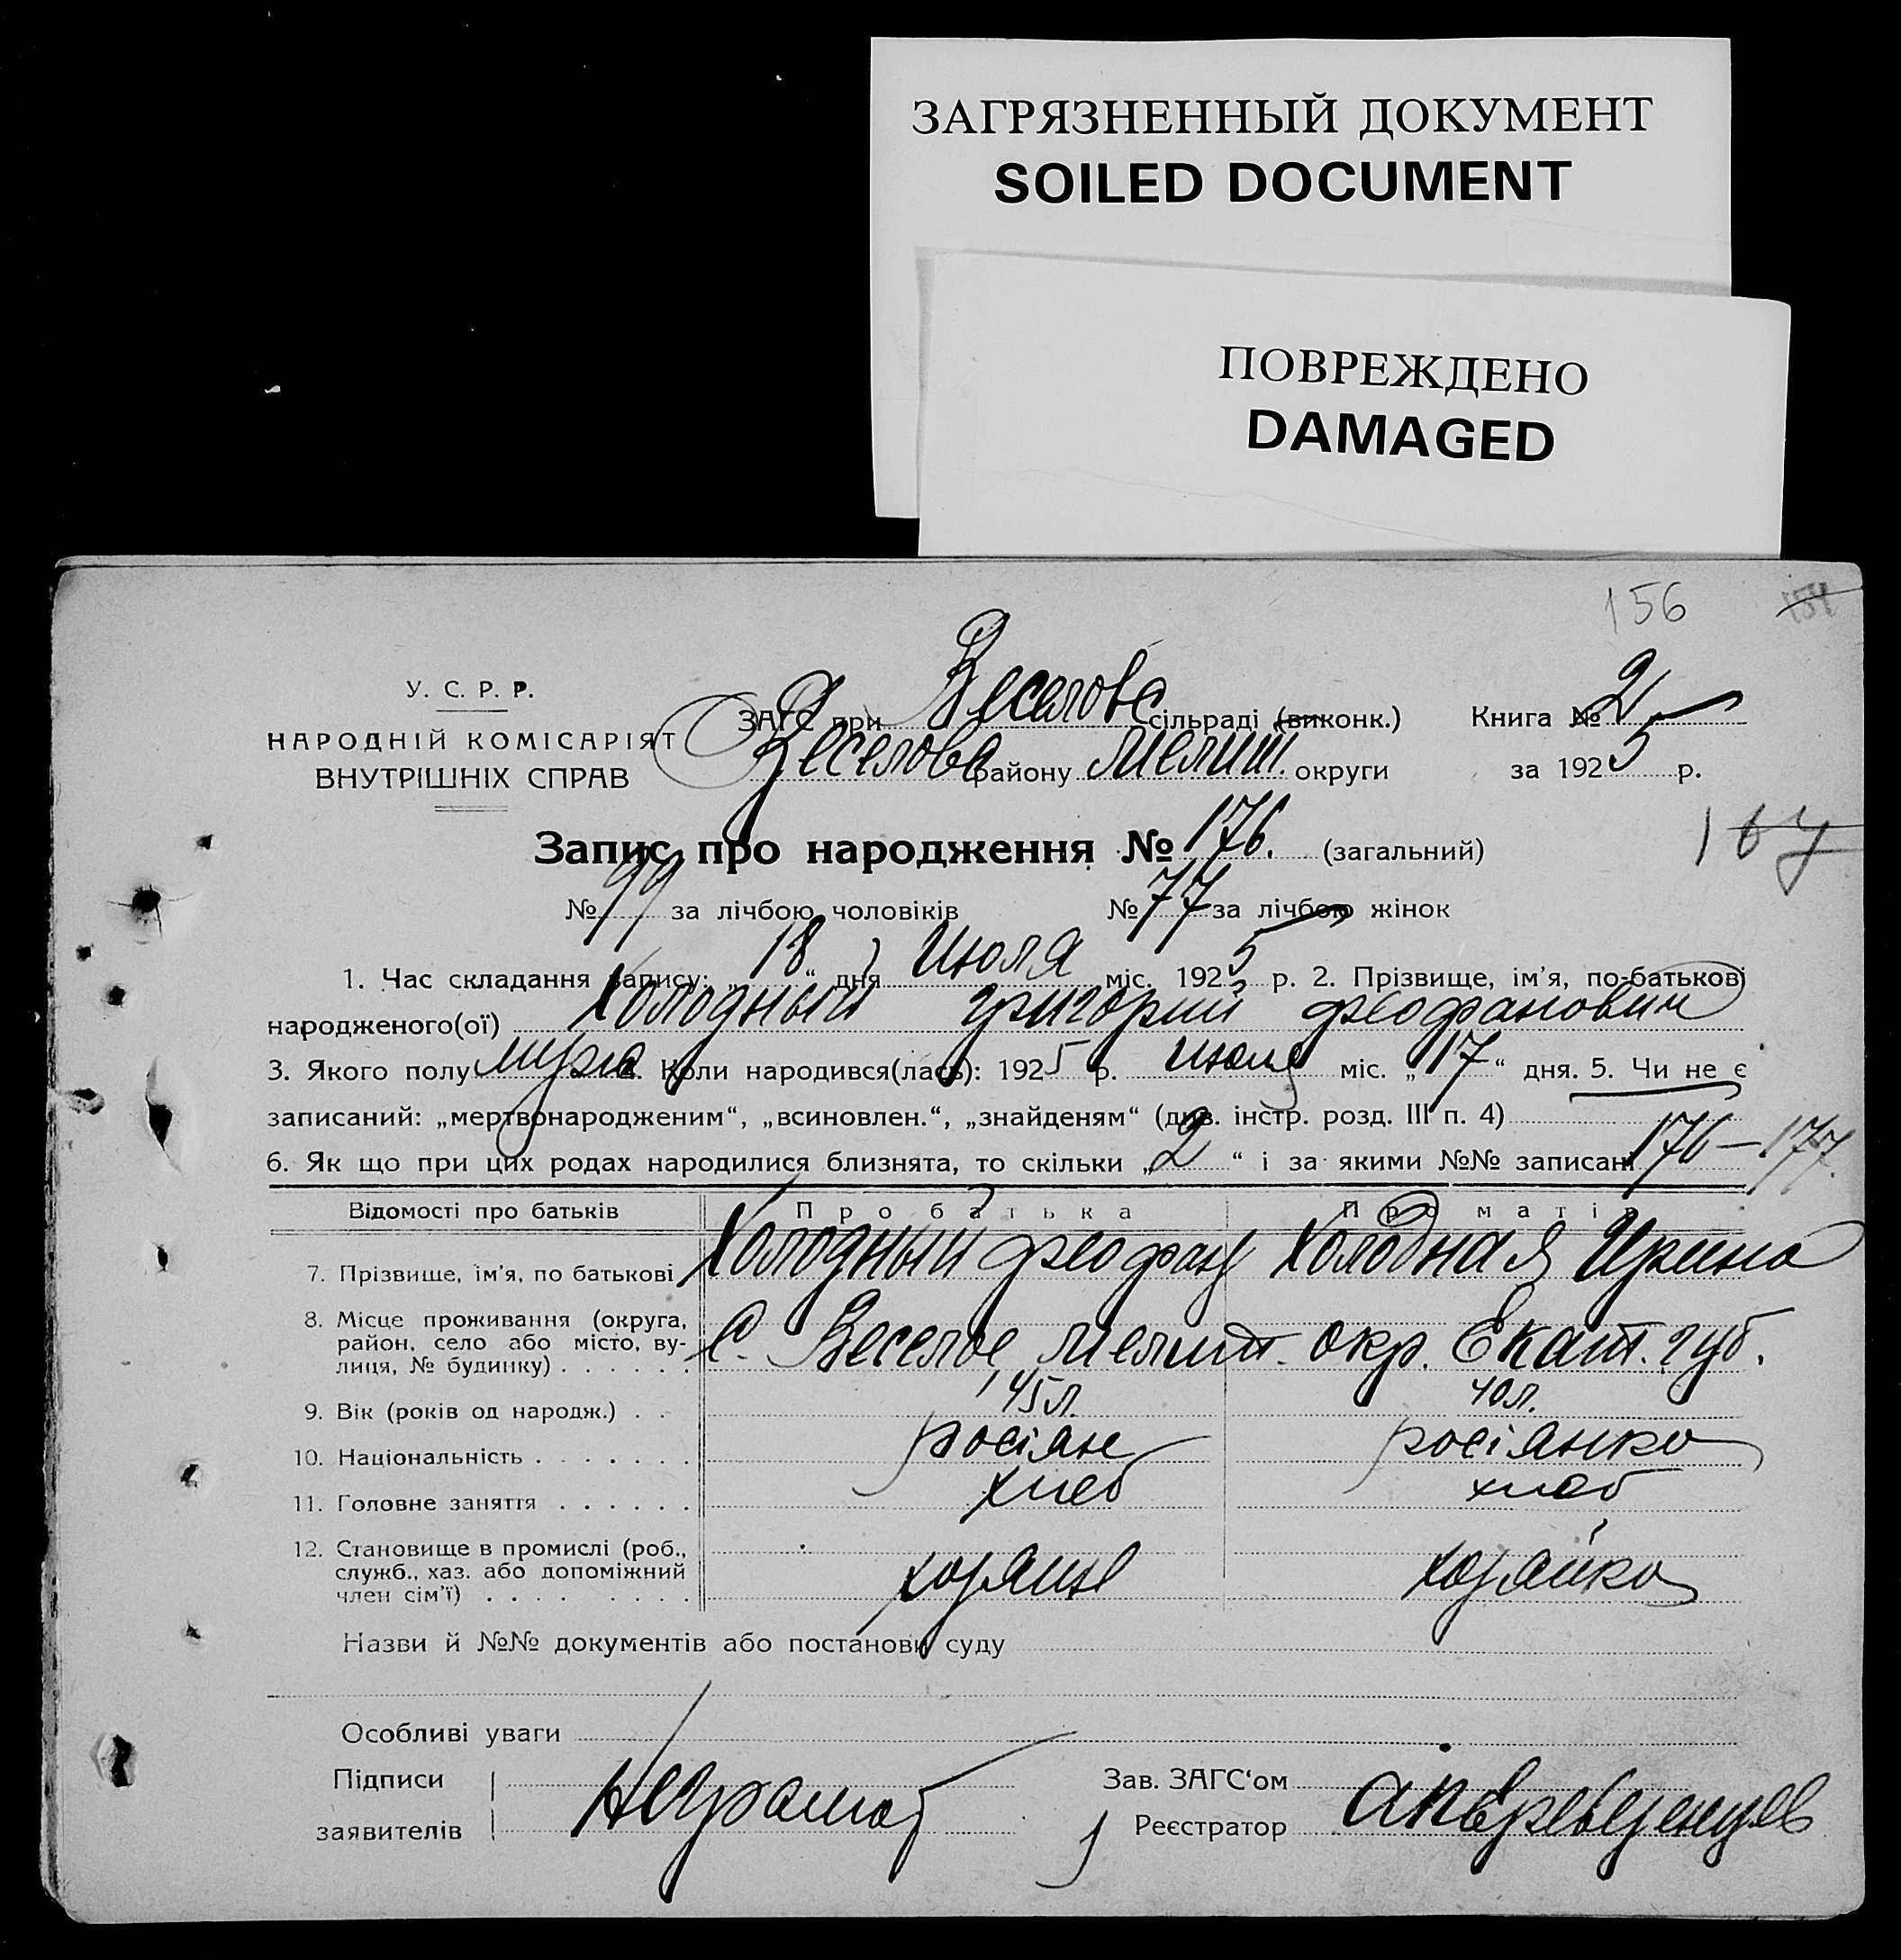 ЗАГРЯЗНЕННЫЙ ДОКУМЕНТ
SOILED DOCUMENT
ПОВРЕЖДЕНО
DAMAGED
156
У. С. Р. Р.
НАРОДНІЙ КОМІСАРІЯТ
ВНУТРІШНІХ СПРАВ
ЗАГС при Веселовс сільраді (виконк.) Книга № 2
Веселовс району Мелит. округи за 1925 р.
Запис про народження № 176. (загальний)
167
№ 99 за лічбою чоловіків № 77 за лічбою жінок
1. Час складання запису: „18“ дня Июля міс. 1925 р. 2. Прізвище, ім'я, по-батькові
народженого(ої) Холодный Григорий Феофанович
3. Якого полу муж 4. Коли народився(лась): 1925 р. Июля міс. „17“ дня. 5. Чи не є
записаний: „мертвонародженим“, „всиновлен.“, „знайденям“ (див. інстр. розд. III п. 4)
6. Як що при цих родах народилися близнята, то скільки „2“ і за якими №№ записані 176–177.
Відомості про батьків Про батька Про матір
7. Прізвище, ім'я, по батькові Холодный Феофан Холодная Ирина
8. Місце проживання (округа,
район, село або місто, ву-
лиця, № будинку) С. Веселое Мелит. окр. Екат. губ.
9. Вік (років од народж.) 45 л. 40 л.
10. Національність росіян росіянка
11. Головне заняття хлеб хлеб
12. Становище в промислі (роб.,
служб., хаз. або допоміжний
член сім'ї) хозяин хозяйка
Назви й №№ документів або постанови суду
Особливі уваги
Підписи
заявителів Неграмот
Зав. ЗАГС'ом
Реєстратор